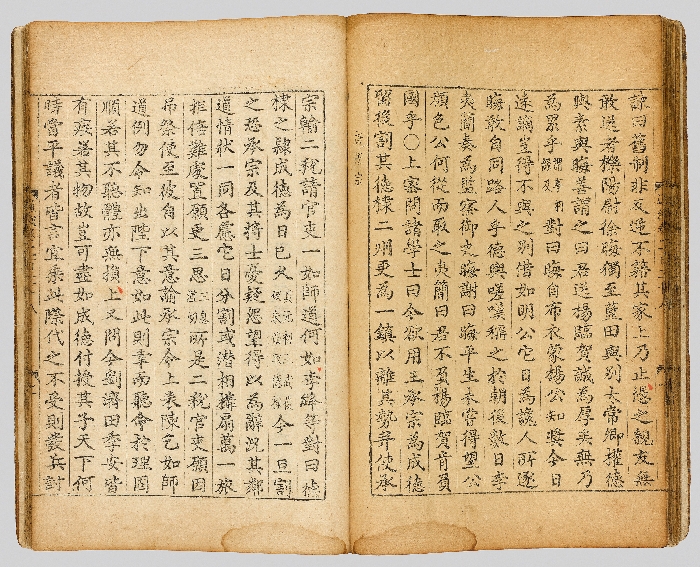 諒曰舊制非反逆不籍其家上乃止憑之親友無
敢送者櫟陽尉徐晦獨至藍田與別太常卿權德
輿素與晦善謂之曰君送楊臨賀誠為厚矣無乃
為累乎對曰晦自布衣蒙楊公知奬今日
遠謫豈得不與之別借如明公它日為讒人所逐
晦敢自同路人乎德輿嗟嘆稱之於朝後數日李
夷簡奏為監察御史晦謝曰晦平生未嘗得望公
顔色公何從而取之夷簡曰君不負楊臨賀肯負
國乎○上密問諸學士曰今欲用王承宗為成德
留後割其德棣二州更為一鎮以離其勢并使承
宗輸二稅請官吏一如師道何如李絳等對曰德
棣之隷成德為日已久今一旦割
之恐承宗及其將士憂疑怨望得以為辭況其鄰
道情狀一同各慮它日分割或潛相構扇萬一旅
拒倍難處置願更三思所是二稅官吏願因
弔祭使至彼自以其意諭承宗令上表陳乞如師
道例勿令知出陛下意如此則幸而聽命於理固
順若其不聽體亦無損上又問今劉濟田季安皆
有疾若其物故豈可盡如成德付授其子天下何
時當平議者皆言宜乘此際代之不受則發兵討